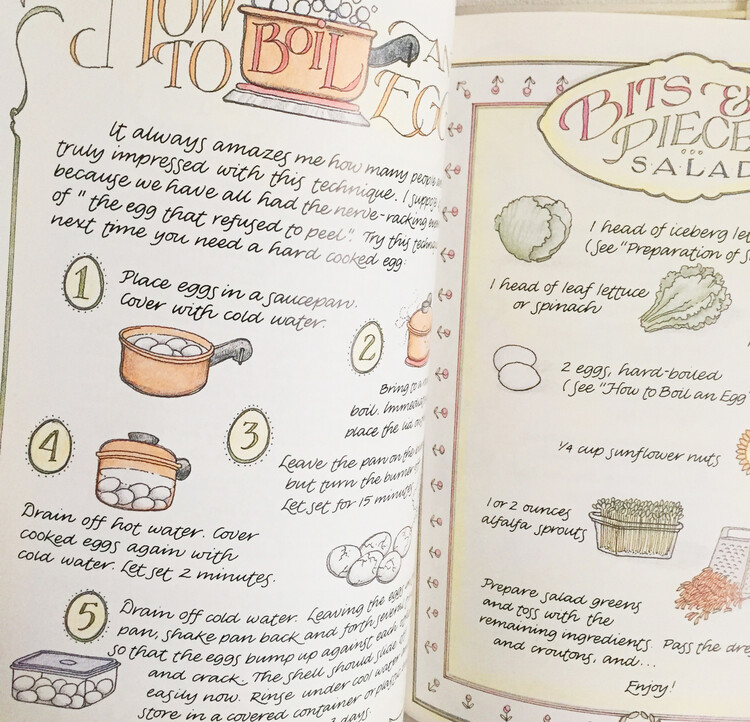 HOW
TO BOIL AN
EGG
It always amazes me how many people
truly impressed with this technique. I
because we have all had the nerve-racking
of "the egg that refused to peel". Try this
next time you need a hard cooked egg:
1
Place eggs in a saucepan.
Cover with cold water.
2
Bring to a
boil.
place the lid on
3
Leave the pan on the
but turn the burner
Let set for 15 minutes
4
Drain off hot water. Cover
cooked eggs again with
cold water. Let set 2 minutes.
5
Drain off cold water. Leaving the eggs
pan, shake pan back and forth several
so that the eggs bump up against each
and crack. The shell should slide
easily now. Rinse under cool water
store in a covered container or plastic
days.
BITS &
PIECE
SALAD
1 head of iceberg
(See "Preparation of
1 head of leaf lettuce
or spinach
2 eggs, hard-boiled
(See "How to Boil an Egg"
1/4 cup sunflower nuts
1 or 2 ounces
alfalfa sprouts
Prepare salad greens
and toss with the
remaining ingredients. Pass the
and croutons, and...
Enjoy!